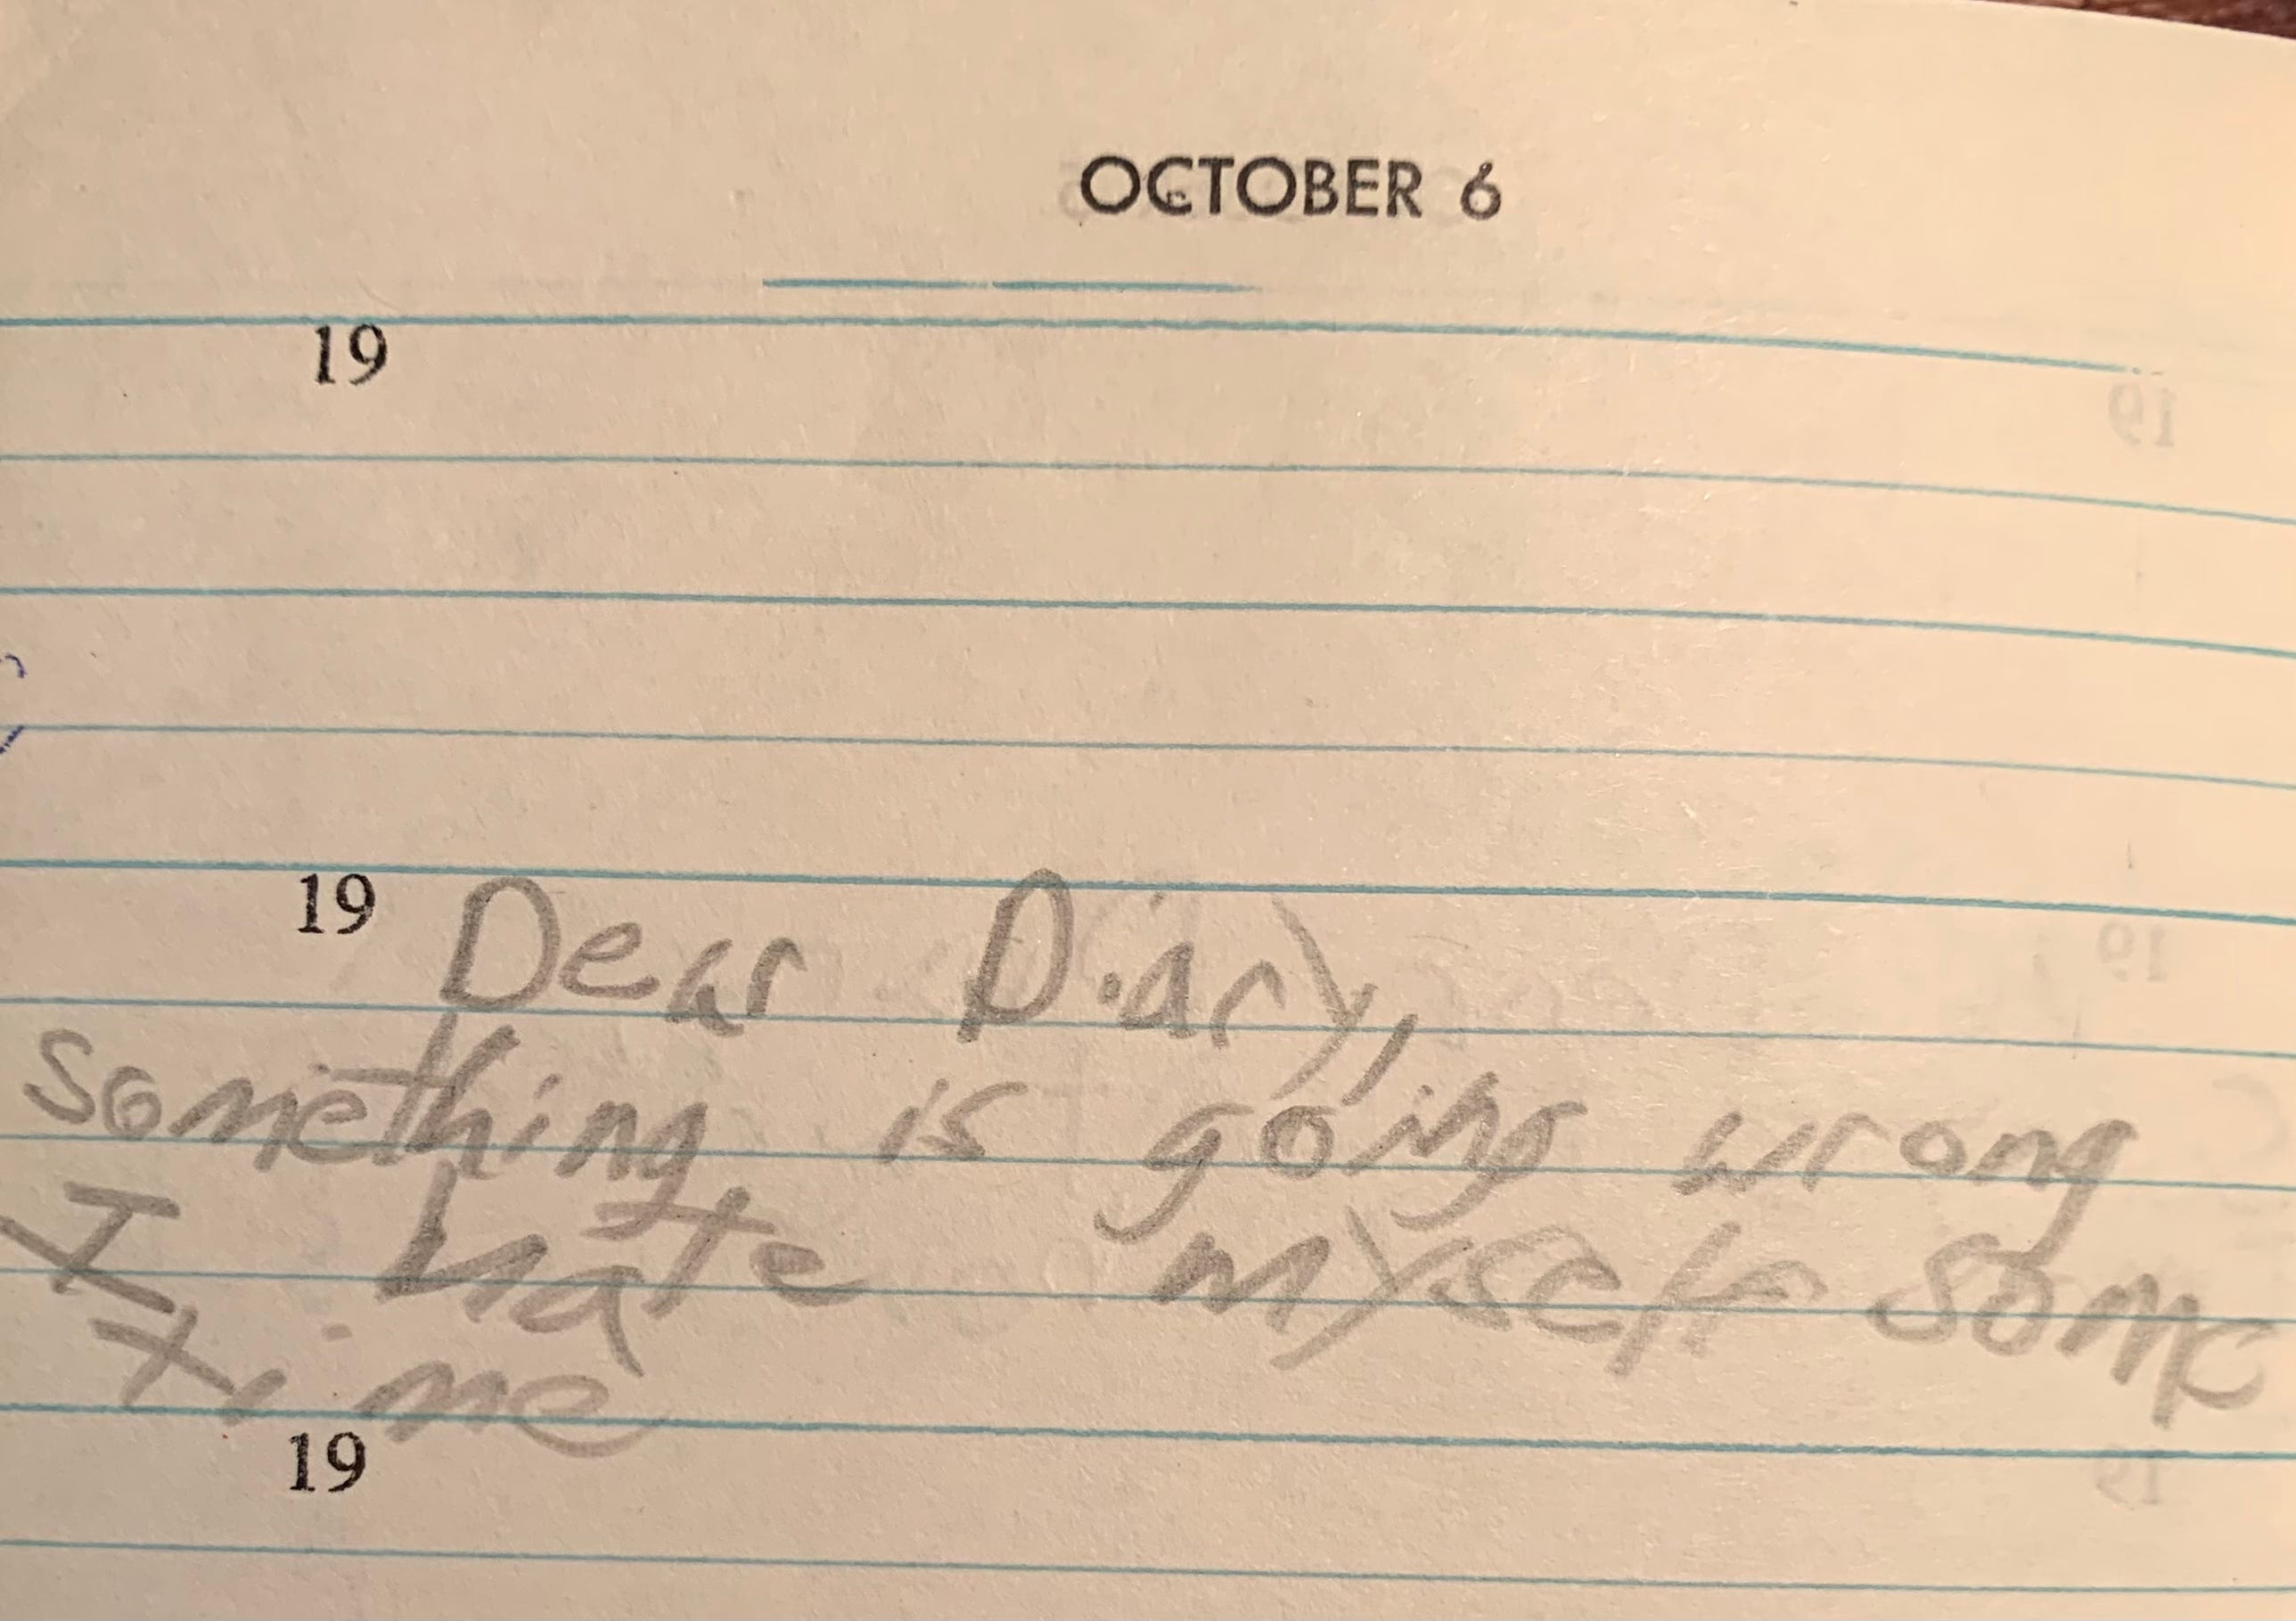 OCTOBER 6
19
19 Dear Diary,
Something is going wrong
I hate myself some
time
19